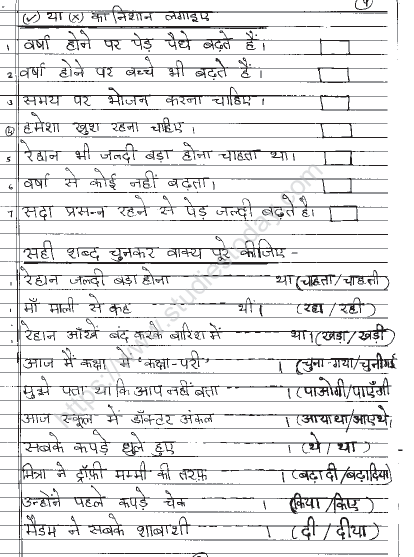 (✓) या (x) का निशान लगाइए
1 वर्षा होने पर पेड़ पौधे बढ़ते हैं।
2 वर्षा होने पर बच्चे भी बढ़ते हैं।
3 समय पर भोजन करना चाहिए।
4 हमेशा खुश रहना चाहिए।
5 रेहान भी जल्दी बड़ा होना चाहता था।
6 वर्षा से कोई नहीं बढ़ता।
7 सदा प्रसन्न रहने से पेड़ जल्दी बढ़ते है।
सही शब्द चुनकर वाक्य पूरे कीजिए -
रेहान जल्दी बड़ा होना ------ था (चाहता / चाहती)
माँ माली से कह ------ थीं। (रहा / रही)
रेहान आँखें बंद करके बारिश में ------ था। (खड़ा / खड़ी)
आज मैं कक्षा में 'कक्षा-परी' ------ । (चुना-गया / चुनी गई)
मुझे पता था कि आप नहीं बता ------ । (पाओगी / पाएँगी)
आज स्कूल में डॉक्टर अंकल ------ । (आया था / आए थे)
सबके कपड़े धुले हुए ------ । (थे / था)
मित्रा ने ट्रॉफ़ी मम्मी की तरफ़ ------ । (बढ़ा दी / बढ़ा दिया)
उन्होंने पहले कपड़े चेक ------ । (किया / किए)
मैडम ने सबके शाबाशी ------ । (दी / दीया)
https://www.studiestoday.com